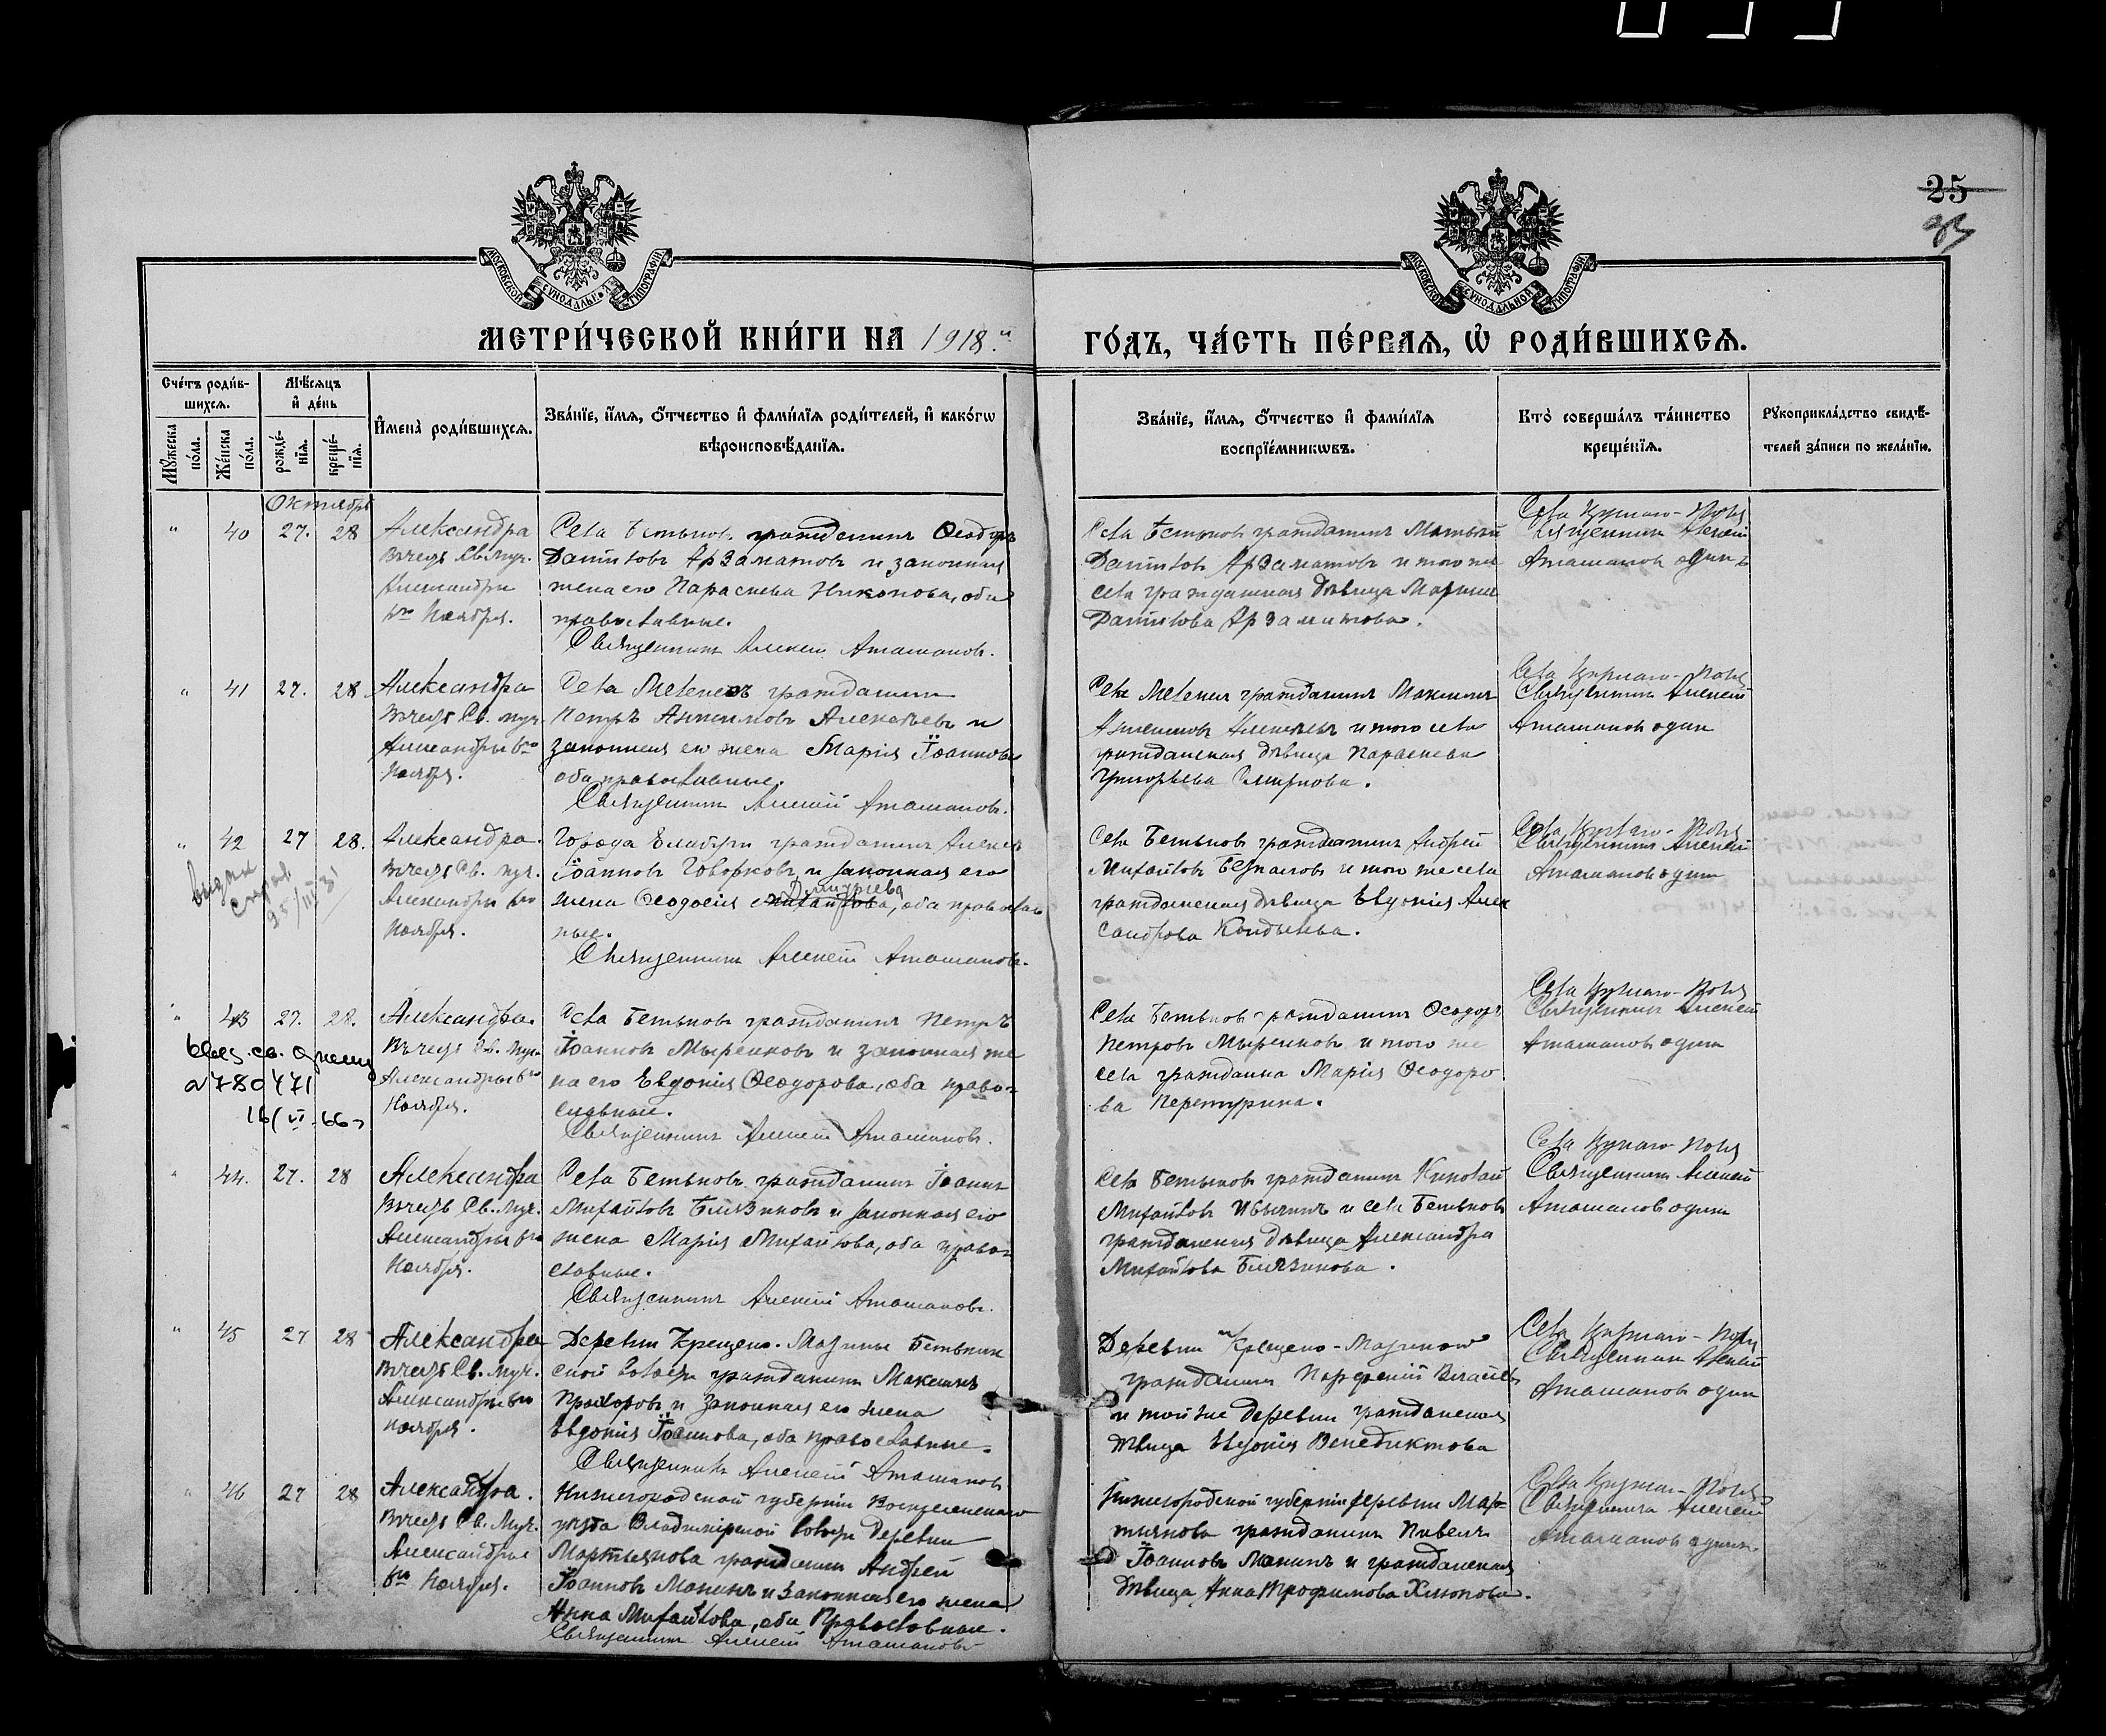 25
МОСКОВСКОЙ СУНОДАЛЬНОЙ ТИПОГРАФІИ
МОСКОВСКОЙ СУНОДАЛЬНОЙ ТИПОГРАФІИ
МЕТРИ́ЧЕСКОЙ КНИ́ГИ НА 1918 й
ГО́ДЪ, ЧА́СТЬ ПЕ́РВАѦ, Ѽ РОДИ́ВШИХСѦ.
Сче́тъ роди́в-
шихсѧ.
Мꙋжеска по́ла.
Же́нска по́ла.
Мѣ́сѧцъ
и҆ де́нь
рожде́-
нїѧ.
креще́-
нїѧ.
И҆мена̀ роди́вшихсѧ.
Зва́нїе, и҆́мѧ, ѻ҆́тчество и҆ фами́лїѧ роди́телей, и҆ како́гѡ
вѣроисповѣ́данїѧ.
Зва́нїе, и҆́мѧ, ѻ҆́тчество и҆ фами́лїѧ
воспрїе́мникѡвъ.
Кто̀ соверша́лъ та́инство
креще́нїѧ.
Рꙋкоприкла́дство свидѣ́-
телей за́писи по жела́нїю.
Октябрь
" 40 27. 28 Александра
въ честь Св. муч.
Александры
6го Ноября.
Села Бетьковъ гражданинъ Ѳеодоръ
Даниловъ Арзаматовъ и законная
жена его Параскева Никонова, оба
православные.
Священникъ Алексей Аташановъ.
Села Бетьковъ гражданинъ Матвей
Даниловъ Арзаматовъ и того же
села гражданская дѣвица Марина
Данилова Арзаматова.
Священникъ Алексей
Аташановъ одинъ
" 41 27. 28 Александра
въ честь Св. муч.
Александры 6го
Ноября.
Села Мелекесъ гражданинъ
Петръ Алексѣевъ и
законная его жена Марія Іоаннова
оба православные.
Священникъ Алексей Аташановъ.
Села гражданинъ Максимъ
и того села
гражданская дѣвица Параскева
Григорьева Смирнова.
Священникъ Алексей
Аташановъ одинъ
" 42 27 28. Александра.
въ честь Св. муч.
Александры 6го
Ноября.
Города Елабуги гражданинъ Алексей
Іоанновъ Говорковъ и законная его
Димитріева
жена Ѳеодосія Михайлова, оба православ
ные.
Священникъ Алексей Аташановъ.
Села Бетьковъ гражданинъ Андрей
Михайловъ и того же села
гражданская дѣвица Евдокія Алек
сандрова
Священникъ Алексей
Аташановъ одинъ
" 43 27. 28. Александра.
Въ честь Св. муч.
Александры 6го
Ноября.
Села Бетьковъ гражданинъ Петръ
Іоанновъ Мыренковъ и законная же
на его Евдокія Ѳеодорова, оба право-
славные.
Священникъ Алексей Аташановъ.
780471
16/VI-66
Села Бетьковъ гражданинъ Ѳеодоръ
Петровъ Мыренковъ и того же
села гражданка Марія Ѳеодоро
ва
Священникъ Алексей
Аташановъ одинъ
" 44. 27. 28 Александра
Въ честь Св. муч.
Александры 6го
Ноября.
Села Бетьковъ гражданинъ Іоаннъ
Михайловъ Близниковъ и законная его
жена Марія Михайлова, оба право-
славные.
Священникъ Алексей Аташановъ.
Села Бетьковъ гражданинъ Николай
Михайловъ и села Бетьковъ
гражданская дѣвица Александра
Михайлова
Священникъ Алексей
Аташановъ одинъ
" 45 27 28 Александра
въ честь Св. муч.
Александры 6го
Ноября.
Деревни Крещено-Мазины Бетькин
ской волости гражданинъ Максимъ
Прохоровъ и законная его жена
Евдокія Іоаннова, оба православные.
Священникъ Алексей Аташановъ
Деревни Крещено-Мазиной
гражданинъ Порфирій Власіевъ
и той же деревни гражданская
дѣвица Евдокія Венедиктова
Священникъ Алексей
Аташановъ одинъ
" 46 27 28 Александра.
Въ честь Св. муч.
Александры
6го Ноября.
Нижегородской губерніи
уѣзда Владимірской волости деревни
Мартьянова гражданинъ Андрей
Іоанновъ Манинъ и законная его жена
Анна Михайлова, оба Православные.
Священникъ Алексей Аташановъ
Нижегородской губерніи деревни Мар-
тьянова гражданинъ Павелъ
Іоанновъ Манинъ и гражданская
дѣвица Анна Трофимова Хлюпова.
Священникъ Алексей
Аташановъ одинъ